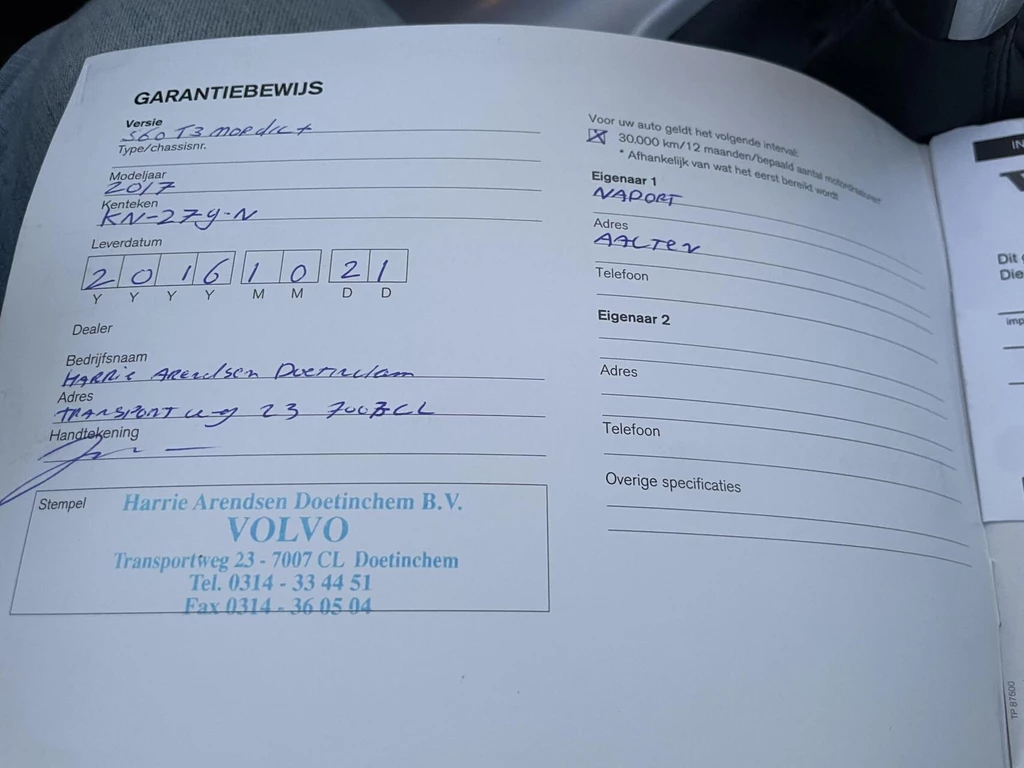 GARANTIEBEWIJS
Versie
S60 T3
Type/chassisnr.
Modeljaar
2017
Kenteken
Leverdatum
2 0 1 6 1 0 2 1
Y Y Y Y M M D D
Dealer
Bedrijfsnaam
HARRie ARendsen
Adres
TRANSPORT 23
Handtekening
Stempel
Harrie Arendsen Doetinchem B.V.
VOLVO
Transportweg 23 - 7007 CL Doetinchem
Tel. 0314 - 33 44 51
Fax 0314 - 36 05 04
Voor uw auto geldt het volgende interval:
30.000 km/12 maanden/bepaald aantal
* Afhankelijk van wat het eerst bereikt wordt
Eigenaar 1
NAPORT
Adres
AALTEN
Telefoon
Eigenaar 2
Adres
Telefoon
Overige specificaties
IN
Dit
Die
imp
TP 87600